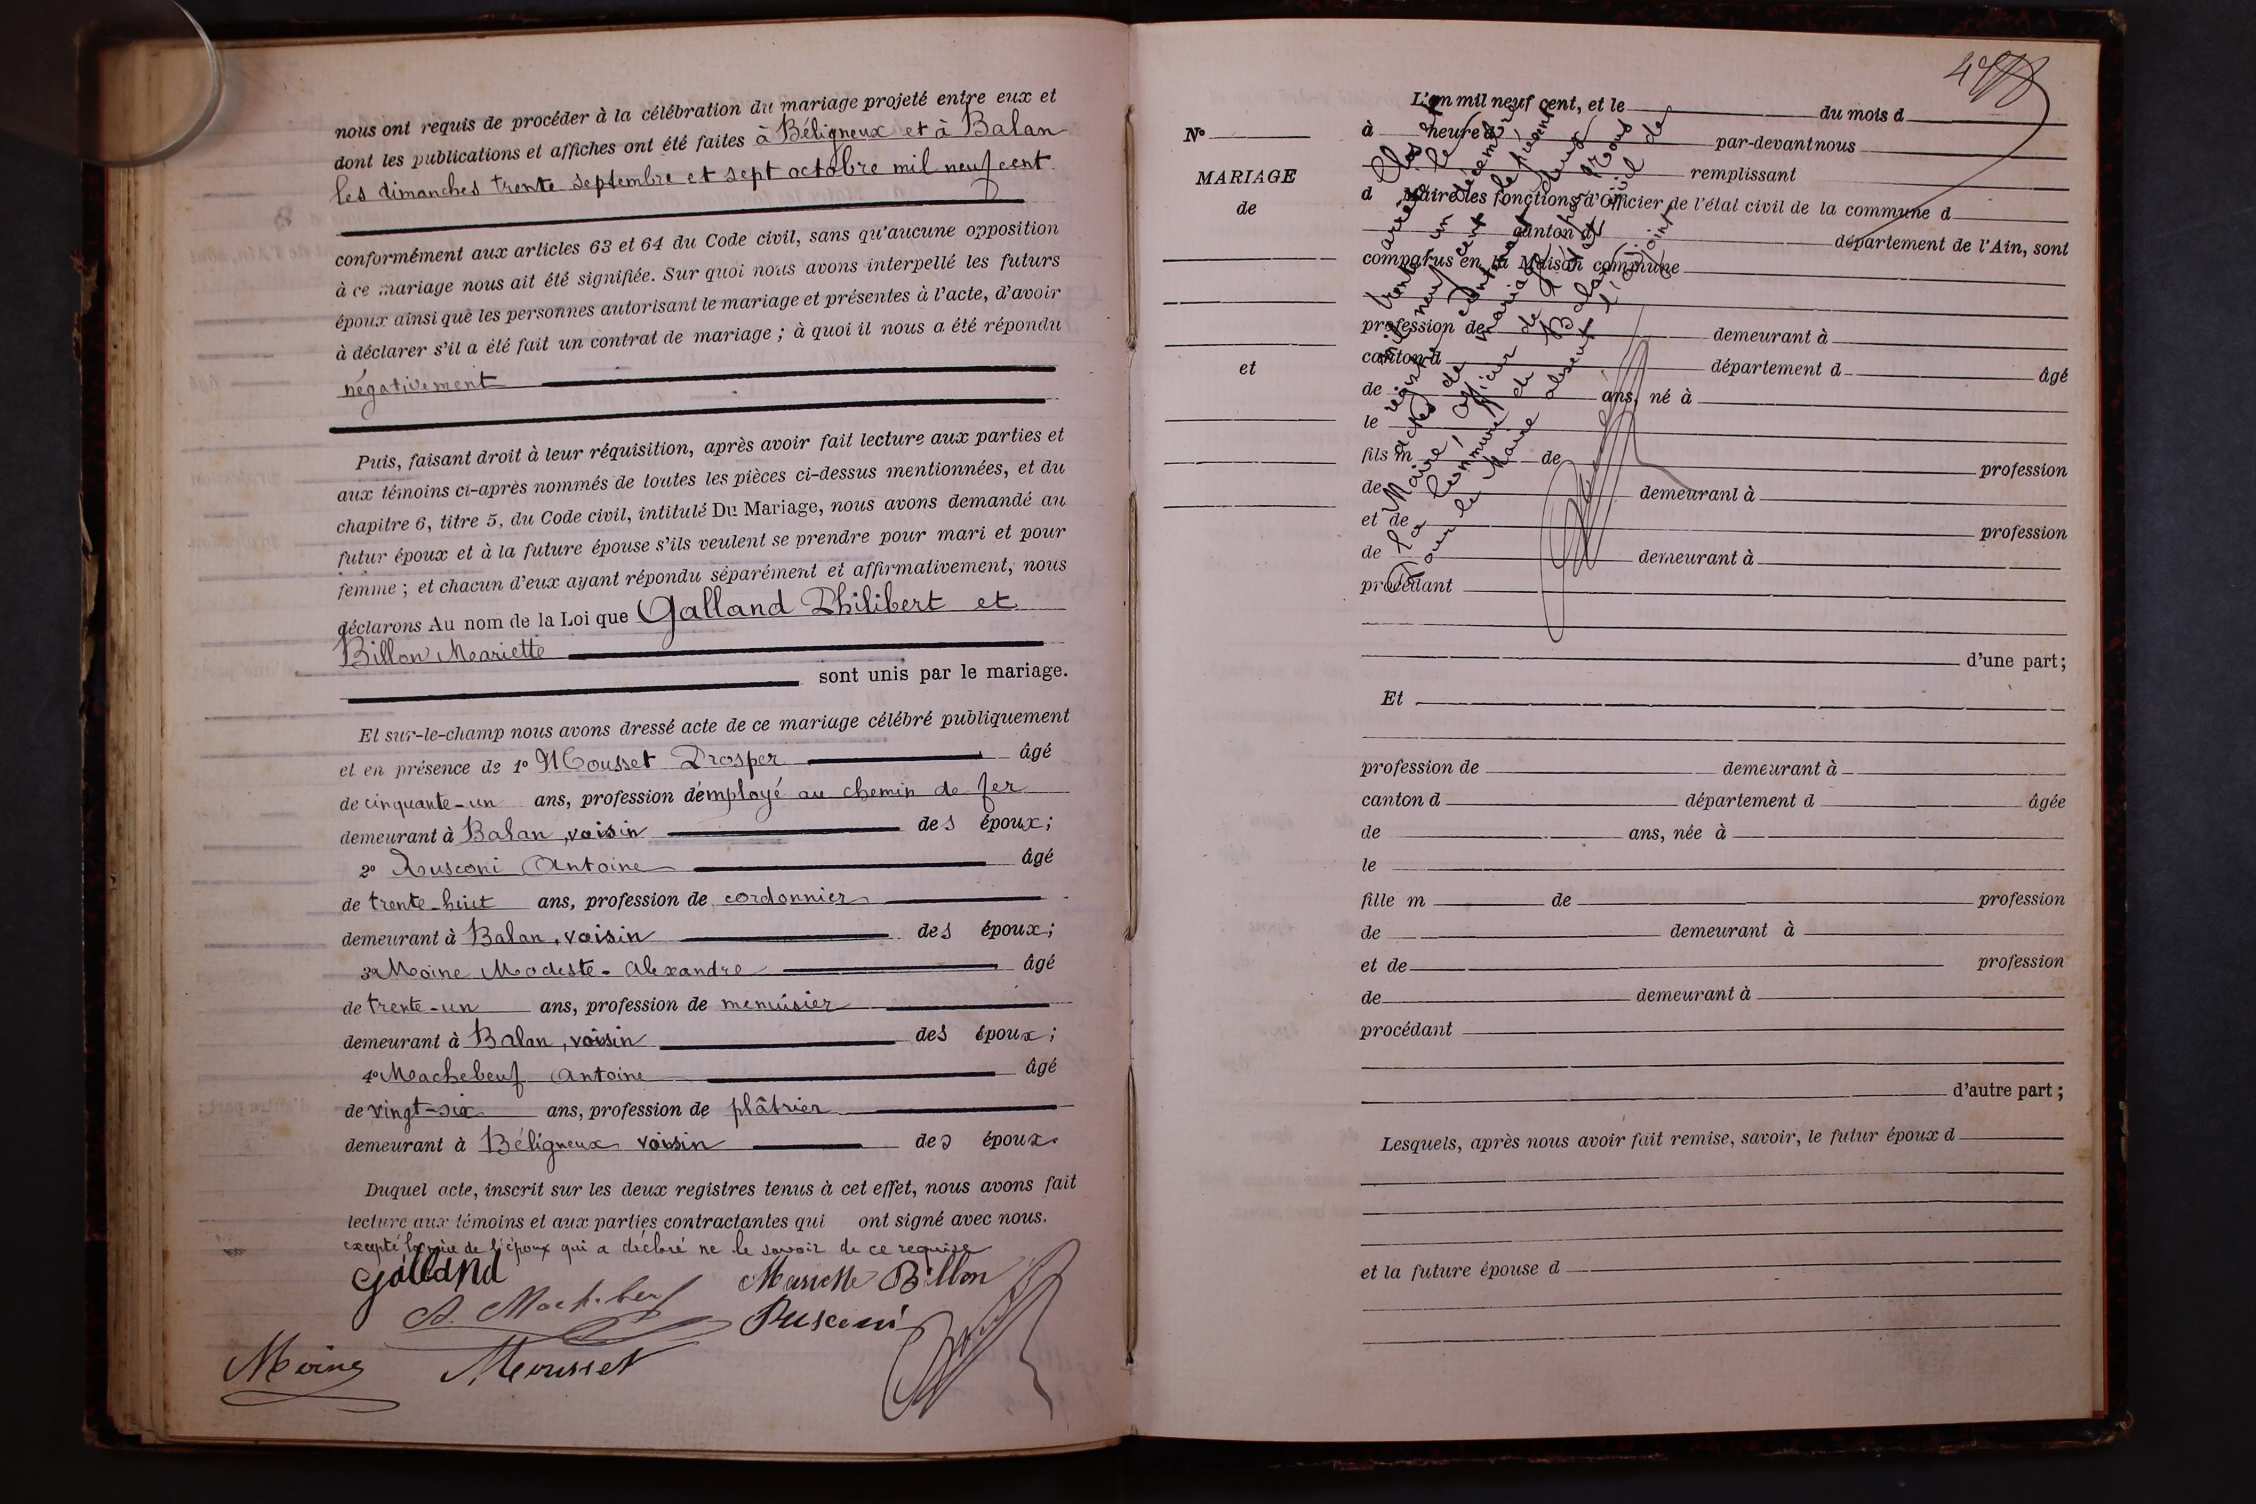 nous ont requis de procéder à la célébration du mariage projeté entre eux et
dont les publications et affiches ont été faites à Béligneux et à Balan
les dimanches trente septembre et sept octobre mil neuf cent
conformément aux articles 63 et 64 du Code civil, sans qu'aucune opposition
à ce mariage nous ait été signifiée. Sur quoi nous avons interpellé les futurs
époux ainsi que les personnes autorisant le mariage et présentes à l'acte, d'avoir
à déclarer s'il a été fait un contrat de mariage ; à quoi il nous a été répondu
négativement
Puis, faisant droit à leur réquisition, après avoir fait lecture aux parties et
aux témoins ci-après nommés de toutes les pièces ci-dessus mentionnées, et du
chapitre 6, titre 5, du Code civil, intitulé Du Mariage, nous avons demandé au
futur époux et à la future épouse s'ils veulent se prendre pour mari et pour
femme ; et chacun d'eux ayant répondu séparément et affirmativement, nous
déclarons Au nom de la Loi que Galland Philibert et
Billon Mariette
sont unis par le mariage.
Et sur-le-champ nous avons dressé acte de ce mariage célébré publiquement
et en présence de 1o Mousset Prosper âgé
de cinquante-un ans, profession d'employé au chemin de fer
demeurant à Balan, voisin des époux ;
2o Rusconi Antoine âgé
de trente-huit ans, profession de cordonnier
demeurant à Balan, voisin des époux ;
3o Moine Modeste-Alexandre âgé
de trente-un ans, profession de menuisier
demeurant à Balan, voisin des époux ;
4o Machebeuf Antoine âgé
de vingt-six ans, profession de plâtrier
demeurant à Béligneux voisin des époux.
Duquel acte, inscrit sur les deux registres tenus à cet effet, nous avons fait
lecture aux témoins et aux parties contractantes qui ont signé avec nous.
excepté la mère de l'époux qui a déclaré ne le savoir de ce requise
Galland
A. Machebeuf
Mariette Billon
Rusconi
Moine
Mousset
No
MARIAGE
de
et
L'an mil neuf cent, et le du mois d
à heure d par-devant nous
remplissant
d Maire les fonctions d'Officier de l'état civil de la commune d
canton d département de l'Ain, sont
comparus en la Maison commune
profession de demeurant à
canton d département d âgé
de ans, né à
le
fils m de profession
de demeurant à
et de profession
de demeurant à
procédant
d'une part ;
Clos et
arrêté le
trente un décembre
mil neuf cent le présent
registre contenant deux
actes de mariage par Nous
Maire, officier de l'état civil de
la Commune de Balan
Pour le Maire absent l'adjoint
Et
profession de demeurant à
canton d département d âgée
de ans, née à
le
fille m de profession
de demeurant à
et de profession
de demeurant à
procédant
d'autre part ;
Lesquels, après nous avoir fait remise, savoir, le futur époux d
et la future épouse d